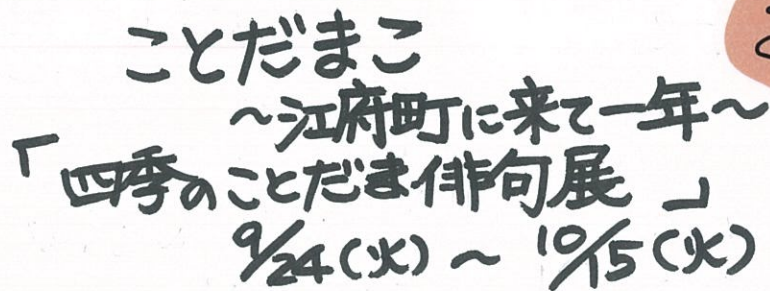 ことだまこ
～江府町に来て一年～
「四季のことだま俳句展」
9/24(火)～10/15(火)